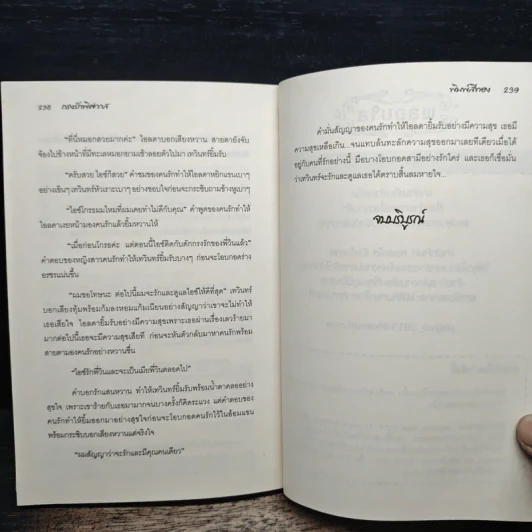 238 กรงรักพิศวาส
"ที่นี่หมอกสวยมากค่ะ" ไอลดาบอกเสียงหวาน สายตายังจับ
จ้องไปข้างหน้าที่มีทะเลหมอกยามเช้าลอยตัวไปมา เทวินทร์ยิ้มรับ
"ครับสวย ไอซ์ก็สวย" คำชมของคนรักทำให้ไอลดาหยิกแขนเบาๆ
อย่างเขินๆ เทวินทร์หัวเราะเบาๆ อย่างชอบใจก่อนจะกระซิบถามข้างหูเบาๆ
"ไอซ์โกรธผมไหมที่ผมเคยทำไม่ดีกับคุณ" คำพูดของคนรักทำให้
ไอลดาเงยหน้ามองคนรักแล้วยิ้มหวานให้
"เมื่อก่อนโกรธค่ะ แต่ตอนนี้ไอซ์ติดกับดักกรงรักของพี่วินแล้ว"
คำตอบของหญิงสาวคนรักทำให้เทวินทร์ยิ้มรับบางๆ ก่อนจะโอบกอดร่าง
อรชรแน่นขึ้น
"ผมขอโทษนะ ต่อไปนี้ผมจะรักและดูแลไอซ์ให้ดีที่สุด" เทวินทร์
บอกเสียงทุ้มพร้อมก้มลงหอมแก้มเนียนอย่างสัญญาว่าเขาจะไม่ทำให้
เธอเสียใจ ไอลดายิ้มรับอย่างมีความสุขเพราะเธอผ่านเรื่องเลวร้ายมา
มากต่อไปนี้เธอจะมีความสุขเสียที ก่อนจะหันตัวกลับมาหาคนรักพร้อม
สายตามองคนรักอย่างหวานชื่น
"ไอซ์รักพี่วินและจะเป็นเมียพี่วินตลอดไป"
คำบอกรักแสนหวาน ทำให้เทวินทร์ยิ้มรับพร้อมน้ำตาคลออย่าง
สุขใจ เพราะเขาร้ายกับเธอมามากจนบางครั้งก็คิดระแวง แต่คำตอบของ
คนรักทำให้ยิ้มออกมาอย่างสุขใจก่อนจะโอบกอดคนรักไว้ในอ้อมแขน
พร้อมกระซิบบอกเสียงหวานแต่จริงใจ
"ผมสัญญาว่าจะรักและมีคุณคนเดียว"
พิมพ์สีทอง 239
คำมั่นสัญญาของคนรักทำให้ไอลดายิ้มรับอย่างมีความสุข เธอมี
ความสุขเหลือเกิน...จนแทบล้นทะลักความสุขออกมาเลยทีเดียวเมื่อได้
อยู่กับคนที่รักอย่างนี้ มือบางโอบกอดสามีอย่างรักใคร่ และเธอก็เชื่อมั่น
ว่าเทวินทร์จะรักและดูแลเธอได้ตราบสิ้นลมหายใจ...
จบบริบูรณ์